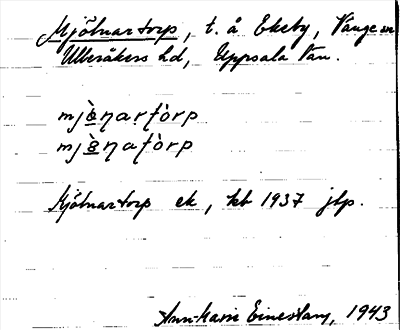 Mjölnartorp, t. å Ekeby, Vänge sn
Ulleråkers hd, Uppsala län.
mjò̱ṇaṛṭòrp
mjò̱ṇaṭòrp
Mjölnartorp ek, kb 1937 jlp.
Ann-Karin Einestam, 1943